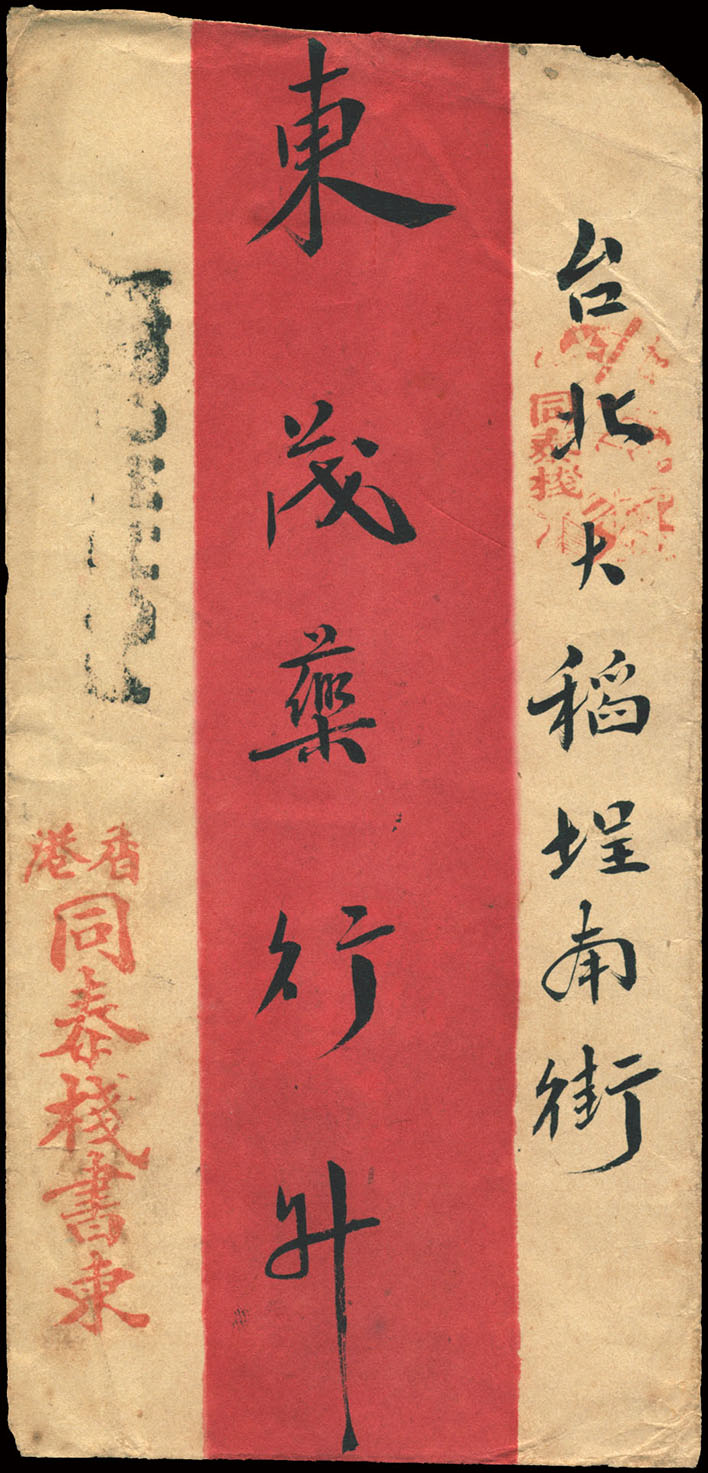 台北大稻埕南街
東茂藥行升
同泰棧
香港
同泰棧書柬